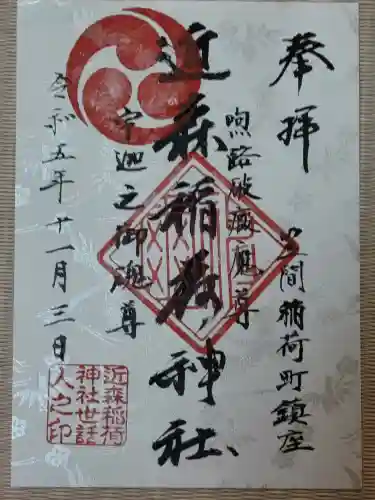 奉拝
間稲荷町鎮座
近森稲荷神社
宇迦之御魂尊
令和五年十一月三日
近森稲荷
神社世話
人之印